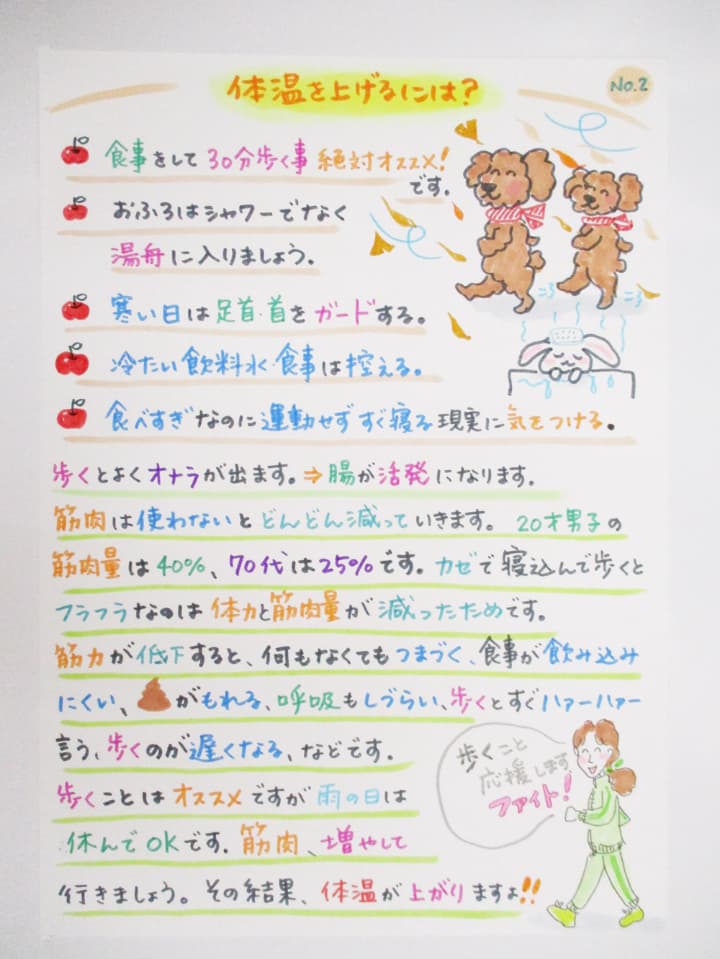 体温を上げるには?
No.2
食事をして30分歩く事 絶対オススメ!
です。
おふろはシャワーでなく
湯舟に入りましょう。
寒い日は足首・首をガードする。
冷たい飲料水・食事は控える。
食べすぎなのに運動せずすぐ寝る現実に気をつける。
歩くとよくオナラが出ます。⇒腸が活発になります。
筋肉は使わないとどんどん減っていきます。 20才男子の
筋肉量は40%、70代は25%です。カゼで寝込んで歩くと
フラフラなのは体力と筋肉量が減ったためです。
筋力が低下すると、何もなくてもつまづく、食事が飲み込み
にくい、💩がもれる、呼吸もしづらい、歩くとすぐハァーハァー
言う、歩くのが遅くなる、などです。
歩くこと
応援します
ファイト!
歩くことはオススメですが雨の日は
休んでOKです。筋肉、増やして
行きましょう。その結果、体温が上がりますよ!!